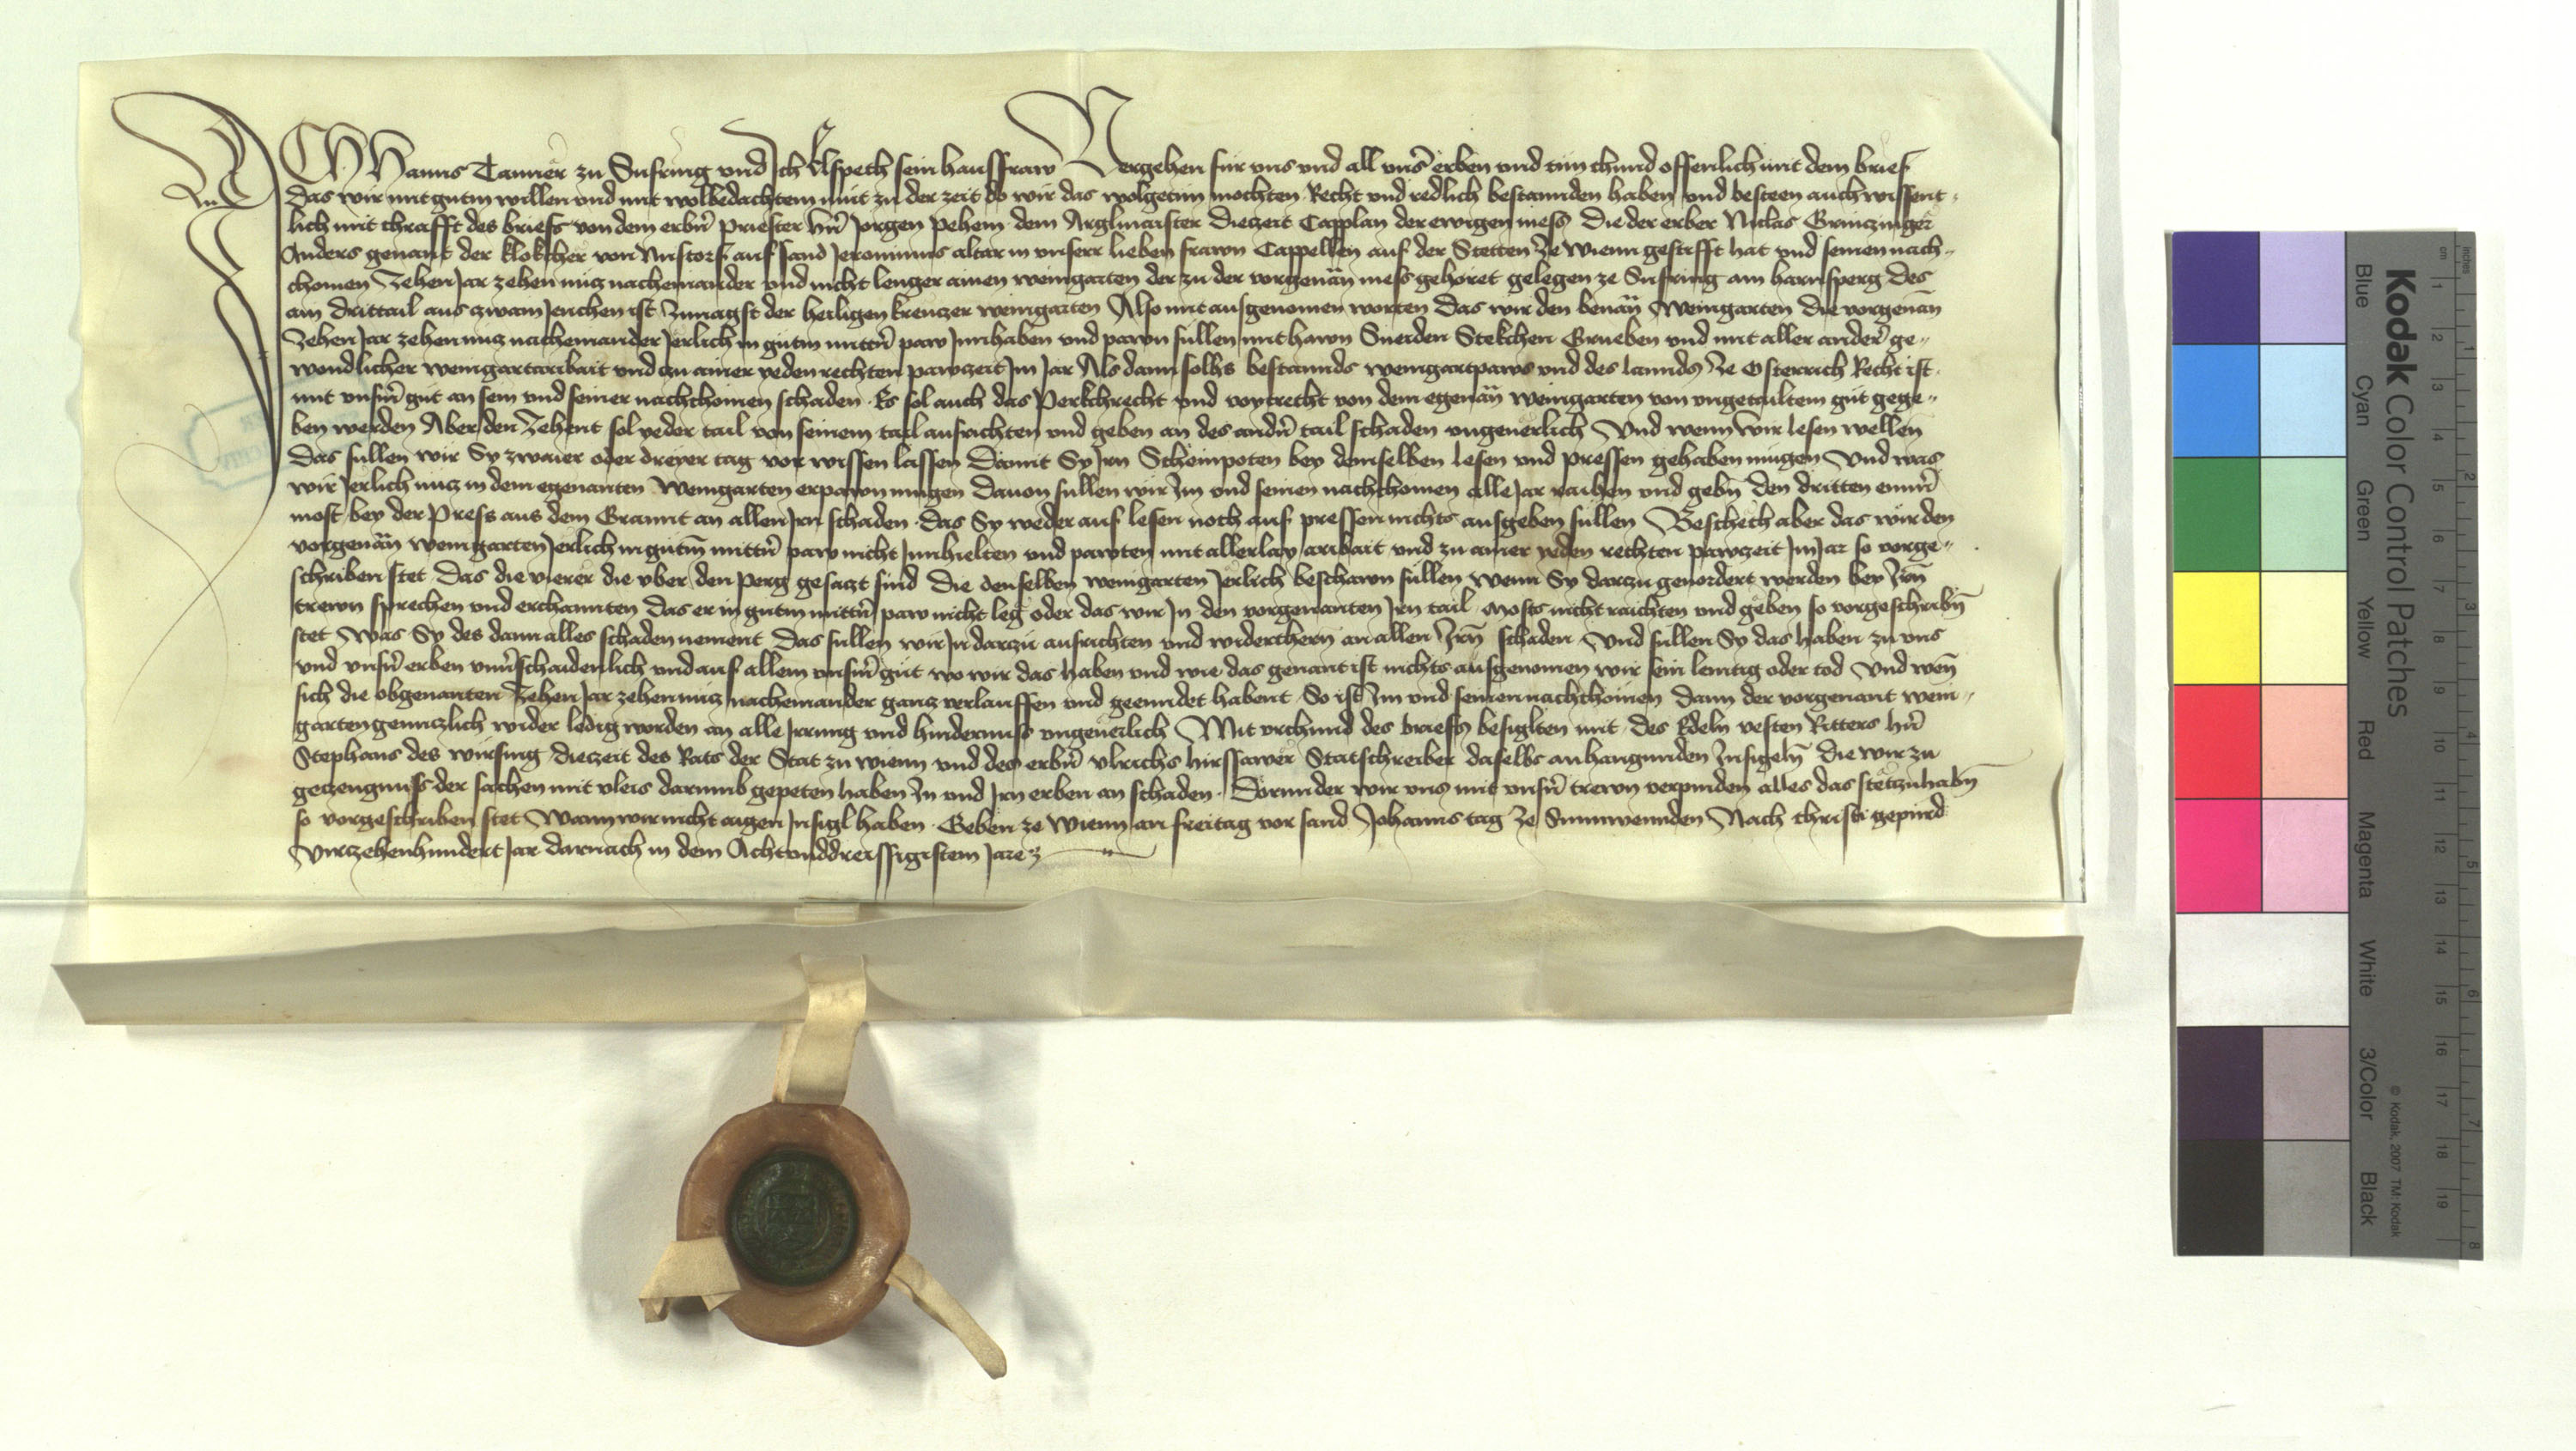 ICH Hanns Tanner zu Sufring und Ich Elspeth sein haussfraw Vergehen für uns und all unser erben und tun chund offenlich mit dem brief
Das wir mit gutm willen und mit wolbedachtem mut zu der zeit do wir das wolgetun mochten Recht und redlich bestannden haben und besteen auch wissent-
lich mit chrafft des briefs von dem erbn priester hn Jorgen Pehem dem Arglmaister diezeit Capplan der ewigen mess Die der erber Niclas Grinczinger
Anders genant der klokcher von Nustorf auf sand Jeronimus altar in unserr lieben frawn Cappellen auf der Stetten ze Wienn gestifft hat und seinen nach-
chomen Zehen Jar zehen nucz nacheinander und nicht lenger ainen weingarten der zu der vorgenan mess gehoret gelegen ze Sufring am harnsperg Des
ain drittail aus zwain Jeuchen ist Zunagst der heiligen kreuczer weingarten Also mit ausgenomen worten Das wir den benan Weingarten Die vorgenan
Zehen Jar zehen nucz nacheinander Jerlich in gutm mittn paw Innhaben und pawn sullen mit hawn Sneiden Stekchen Grueben und mit aller ander ge-
wondlicher weingartaribait und zu ainer yeden rechten pawzeit Im Jar Als dann solhs bestannds weingartpaws und des lannds ze Osterrich Recht ist
mit unserm gut an sein und seiner nachchomen schaden Es sol auch das Perkchrecht und voytrecht von dem egenan weingarten von ungetailtem gut gege-
ben werden Aber den Zehent sol yeder tail von seinem tail ausrichten und geben an des andn tail schaden ungeuerlich Und wenn wir lesen wellen
Das sullen wir Sy zwaier oder dreyer tag vor wissen lassen Damit Sy Irn Scheinpoten bey demselben lesen und pressen gehaben mugen Und was
wir Jerlich nucz in dem egenanten Weingarten erpawn mugen Dauon sullen wir Im und seinen nachchomen alle Jar raihen und gebn Den dritten emmer
most bey der Press aus dem Grannt an allen Irn schaden Das Sy weder auf lesen noch auf pressen nichts ausgeben sullen Beschech aber das wir den
vorgenan weingarten Jerlich in gutm mittn paw nicht Innhielten und pawten mit allerlay aribait und zu ainer yeden rechten pawzeit Im Jar so vorge-
schriben stet Das die vierer die uber den perg gesaczt sind Die denselben weingarten Jerlich beschawn sullen wenn Sy darzu geuordert werden bey Irn
trewn sprechen und erchannten Das er in gutm mittn paw nicht leg oder das wir In den vorgenanten Irn tail Mosts nicht raichten und geben so vorgeschribn
stet Was Sy des dann alles schaden nement Das sullen wir In darzu ausrichten und widerchern an allen Irn schaden Und sullen Sy das haben zu uns
und unsern erben unuerschaidenlich und auf allem unserm gut wo wir das haben und wie das genant ist nichts ausgenomen wir sein lemtig oder tod Und wen
sich die obgenanten Zehen Jar zehen nucz nacheinander gancz verlauffen und geenndet habent So ist Im und seinen nachchomen Dann der vorgenant wein-
garten genczlich wider ledig worden an alle Irrung und hindernuss ungeuerlich Mit urchund des briefs besiglten mit des Edeln vesten Ritters hn
Stephans des wirsing Diezeit des Rats der Stat zu wienn und des erbn Ulrichs hirssawer Statschreiber daselbs anhangunden Insigeln Die wir zu
geczeugnuss der sachen mit vleis darumb gepeten haben In und Irn erben an schaden Dorunder wir uns mit unsern trewn verpinden alles das stetzuhabn
so vorgeschriben stet Wann wir nicht aigen Insigl haben Geben ze Wienn an freitag vor sand Johanns tag ze Sunnwennden Nach christi gepurd
Vierczehenhundert Jar darnach in dem Achtunddreissigistem Jare
Kodak Color Control Patches
Blue Cyan Green Yellow Red Magenta White 3/Color Black
© Kodak, 2007 TM: Kodak
cm 1 2 3 4 5 6 7 8 9 10 11 12 13 14 15 16 17 18 19
inches 1 2 3 4 5 6 7 8